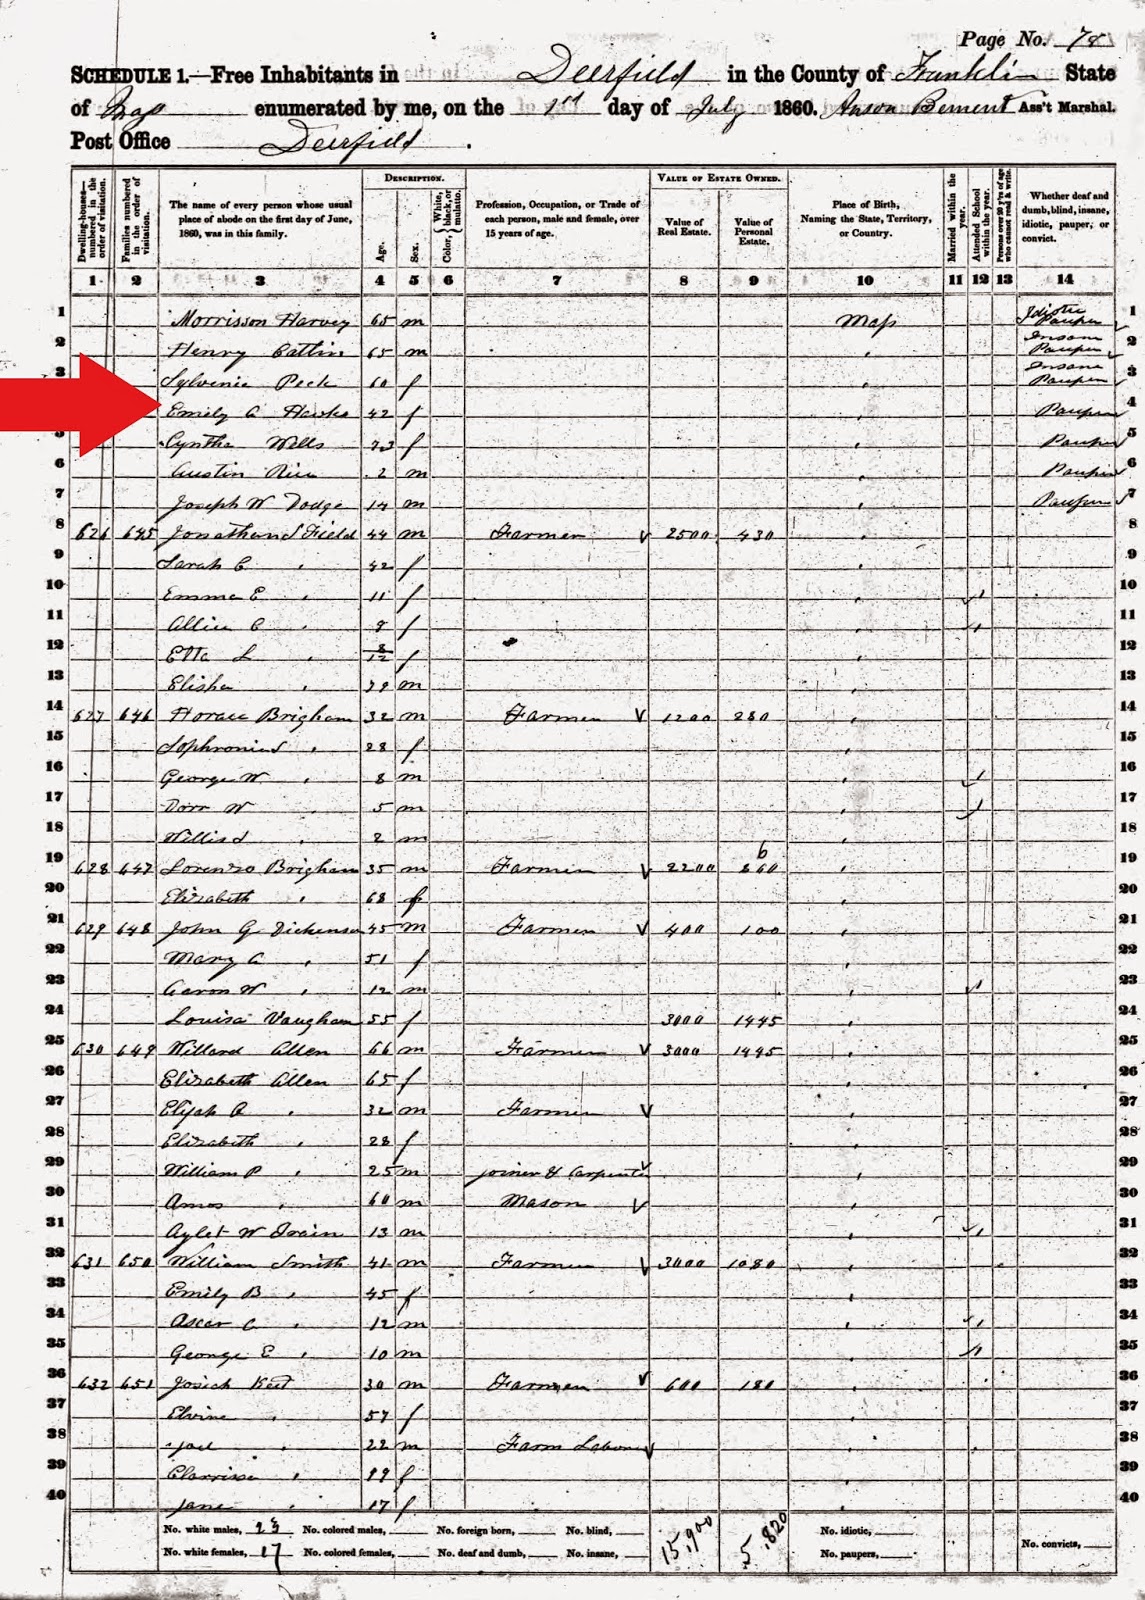 Page No. 78
SCHEDULE 1.—Free Inhabitants in Deerfield in the County of Franklin State
of Mass enumerated by me, on the 1st day of July 1860. Anson Bement Ass't Marshal.
Post Office Deerfield.
DESCRIPTION. VALUE OF ESTATE OWNED.
Dwelling-houses—numbered in the order of visitation. Families numbered in the order of visitation. The name of every person whose usual place of abode on the first day of June, 1860, was in this family. Age. Sex. Color, { White, black, or mulatto. Profession, Occupation, or Trade of each person, male and female, over 15 years of age. Value of Real Estate. Value of Personal Estate. Place of Birth, Naming the State, Territory, or Country. Married within the year. Attended School within the year. Persons over 20 y'rs of age who cannot read & write. Whether deaf and dumb, blind, insane, idiotic, pauper, or convict.
1 2 3 4 5 6 7 8 9 10 11 12 13 14
1 Morrisson Harvey 65 m Mass Idiotic Pauper 1
2 Henry Catlin 65 m Insane Pauper 2
3 Sylvenia Peck 60 f Insane Pauper 3
Emily A Hawks 42 f Pauper 4
5 Cyntha Wells 73 f Pauper 5
6 Austin Rice 2 m Pauper 6
7 Joseph W Dodge 14 m Pauper 7
8 626 645 Jonathan Field 44 m Farmer 2500 430 8
9 Sarah C 42 f 9
10 Emma E 11 f 10
11 Allice C f 11
12 Etta L 8/12 f 12
13 Elisha 79 m 13
14 627 646 Horace Brigham 32 m Farmer 1200 280 14
15 Sophronia 28 f 15
16 George W 8 m 16
17 Dorr W 5 m 17
18 Willis 2 m 18
19 628 647 Lorenzo Brigham 35 m Farmer 2200 19
20 Elizabeth 68 f 20
21 629 648 John G Dickenson 45 m Farmer 400 100 21
22 Mary A 51 f 22
23 Aaron W 12 m 23
24 Louisa Vaugham 55 f 3000 1445 24
25 630 649 Willard Allen 66 m Farmer 3000 1445 25
26 Elizabeth Allen 65 f 26
27 Elijah A 32 m Farmer 27
28 Elizabeth 28 f 28
29 William P 25 m Joiner & Carpenter 29
30 Amos 60 m Mason 30
31 W 13 m 31
32 631 650 William Smith 41 m Farmer 3000 1080 32
33 Emily B 45 f 33
34 Ascar C 12 m 34
35 George E 10 m 35
36 632 651 Josiah 30 m Farmer 600 180 36
37 Elvira 57 f 37
38 Joel 22 m Farm Laborer 38
39 Clarrissa 19 f 39
40 Jane 17 f 40
No. white males, 23 No. colored males, No. foreign born, No. blind, 15,900 5,820 No. idiotic,
No. white females, 17 No. colored females, No. deaf and dumb, No. insane, No. paupers, No. convicts,